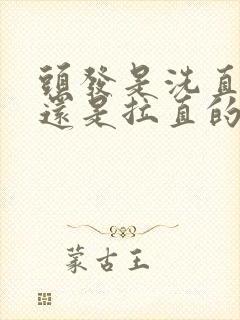 頭發是洗直
還是拉直的
蒙古王